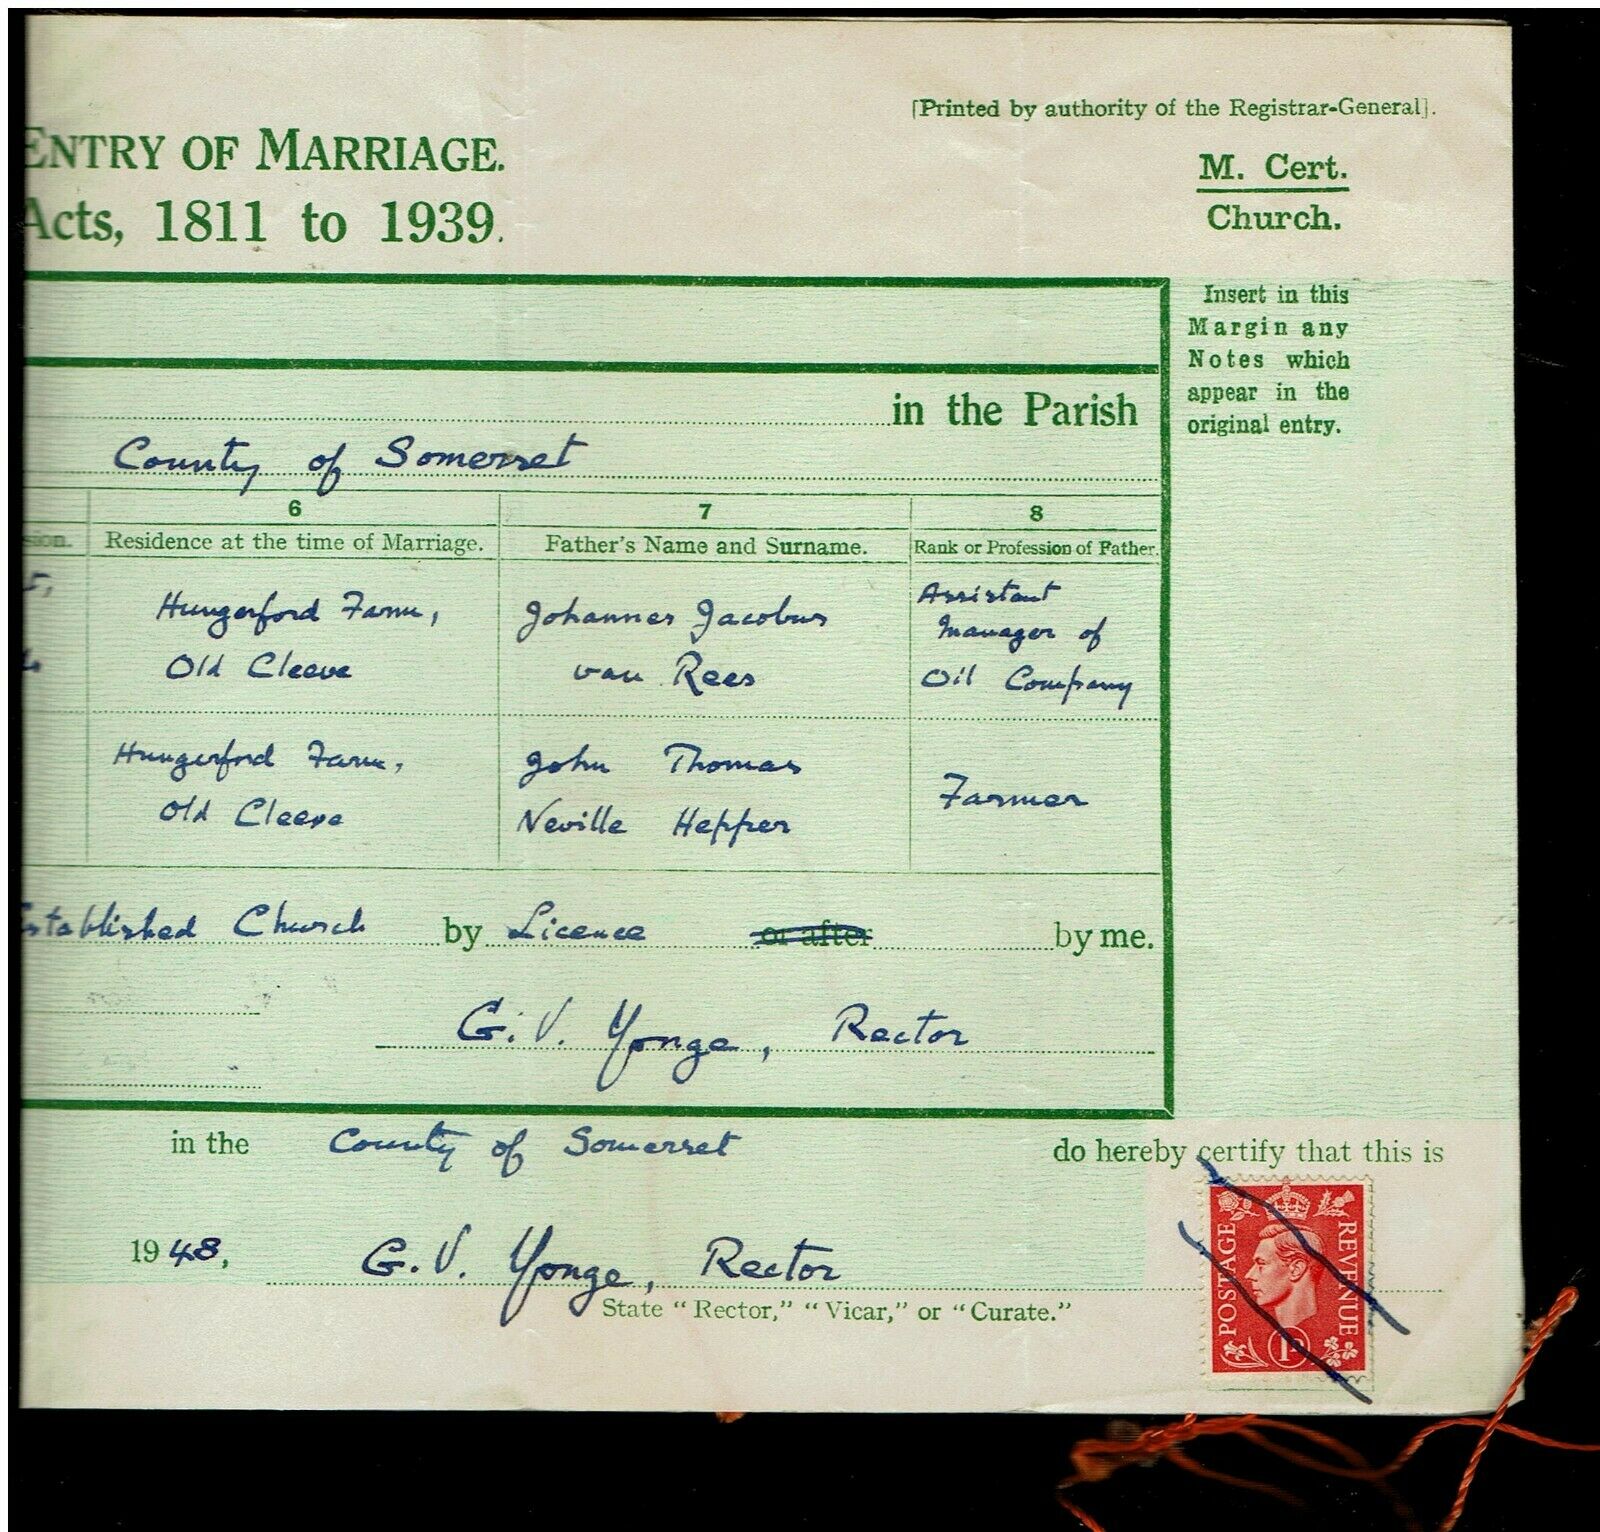 [Printed by authority of the Registrar-General].
ENTRY OF MARRIAGE.
M. Cert.
Acts, 1811 to 1939.
Church.
Insert in this
Margin any
Notes which
appear in the
original entry.
in the Parish
County of Somerset
6 7 8
Residence at the time of Marriage. Father's Name and Surname. Rank or Profession of Father.
Hungerford Farm, Johannes Jacobus Assistant
Manager of
Old Cleeve van Rees Oil Company
Hungerford Farm, John Thomas
Farmer
Old Cleeve Neville Hepper
Established Church by Licence or after by me.
G. V. Yonge, Rector
in the County of Somerset do hereby certify that this is
1948, G. V. Yonge, Rector
State "Rector," "Vicar," or "Curate."
POSTAGE REVENUE
1D